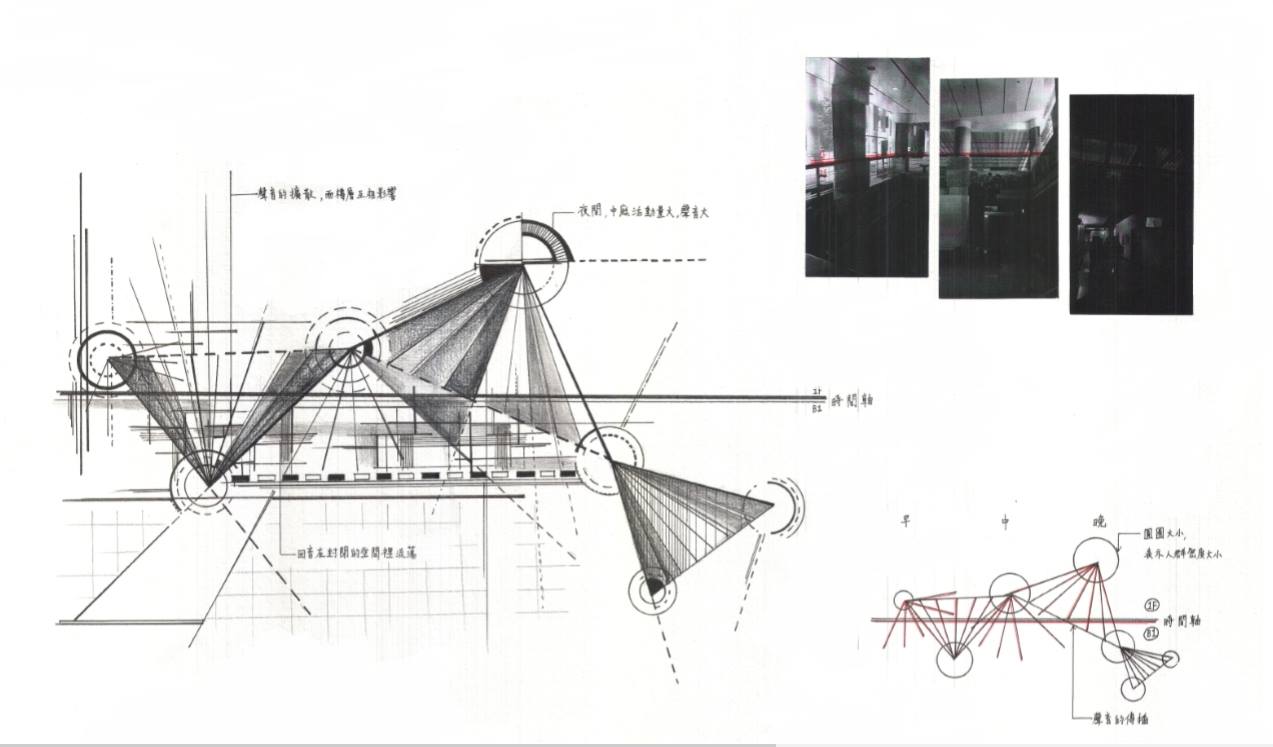 聲音的擴散,而樓層互相影響
夜間,中庭活動量大,聲音大
1F
B1
時間軸
回音在封閉的空間裡流蕩
早
中
晚
圓圈大小,
表示人群密度大小
1F
時間軸
B1
聲音的傳播